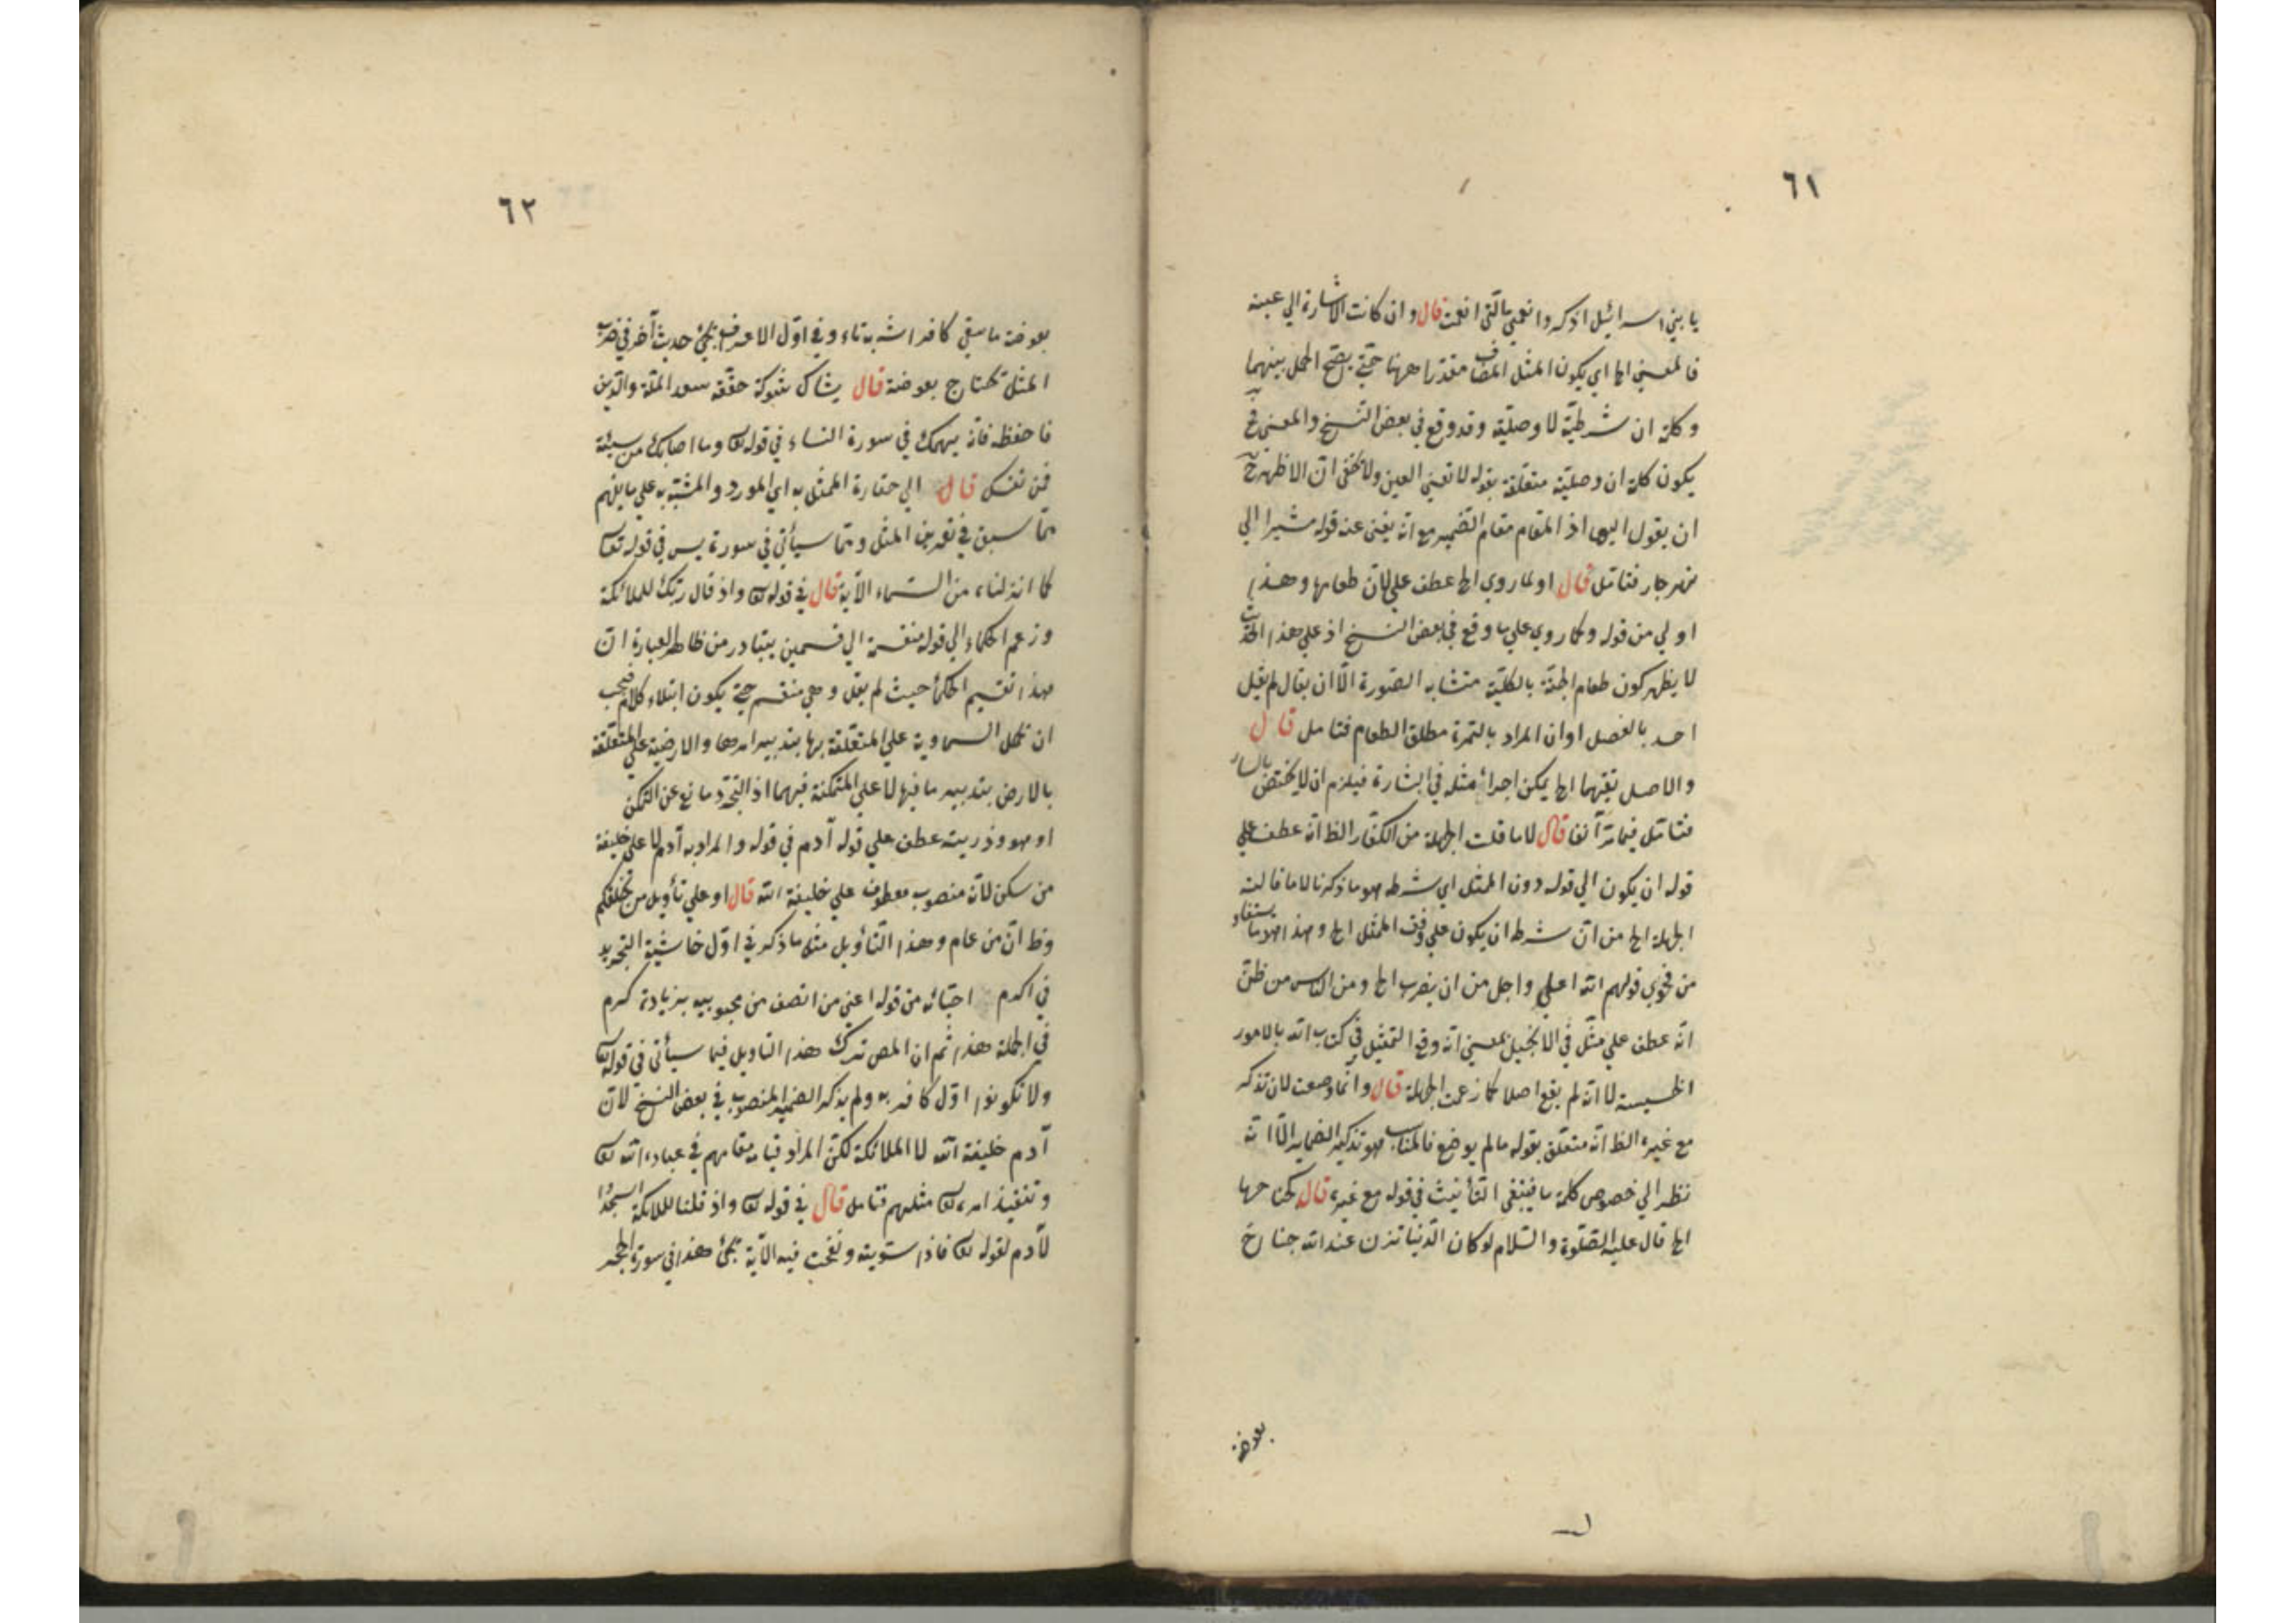 ٦١
يا بني اسرائيل اذكروا نعمتي التي انعمت قال وان كانت الاشارة الي عينه
فالمعني الخ اي يكون المثل المضاف مقدرا ههنا حتي يصح الحمل بينهما
وكلمة ان شرطية لا وصلية وقد وقع في بعض النسخ والمعني فح
يكون كلمة ان وصلية متعلقة بقوله لا تعني العين ولا يخفي ان الاظهر ح
ان يقول اليها اذ المقام مقام الضمير مع انه يغني عنه قوله مشيرا الي
نهر جار فتامل قال او لما روي الخ عطف علي لان طعامها وهذا
اولي من قوله وكما روي علي ما وقع في بعض النسخ اذ علي هذا الحديث
لا يظهر كون طعام الجنة بالكلية متشابه الصورة الا ان يقال لم يقل
احد بالفصل او ان المراد بالثمرة مطلق الطعام فتامل قال
والاصل بقيتهما الخ يمكن اجراء مثله في البشارة فيلزم ان لا يختص بالسار
فتامل فيما مر آنفا قال لا ما قلت الجهلة من الكفار الظ انه عطف علي
قوله ان يكون الي قوله دون الممثل اي شرطه هو ما ذكرنا لا ما قالت
الجهلة الخ من ان شرطه ان يكون علي وفق الممثل الخ وهذا هو ما يستفاد
من فحوي قولهم الله اعلي واجل من ان يضرب الخ ومن الناس من ظن
انه عطف علي مثل في الانجيل بمعني انه وقع التمثيل في كتاب الله بالامور
الخسيسة لا انه لم يقع اصلا كما زعمت الجهلة قال وانما وضعت لان تذكر
مع غيره الظ انه متعلق بقوله ما لم يوضع فالمناسب هو تذكير الضمائر الا انه
نظر الي خصوص كلمة ما فينبغي التأنيث في قوله مع غيره قال كجناحها
الخ قال عليه الصلوة والسلام لو كان الدنيا تزن عند الله جناح
بعوضة
٦٢
بعوضة ما سقي كافرا شربة ماء وفي اول الاعراف يجئ حديث آخر في ضرب
المثل بجناح بعوضة قال يشاك شوكة حققه سعد الملة والدين
فاحفظه فانه يهمك في سورة النساء في قوله تع وما اصابك من سيئة
فمن نفسك قال الي حقارة الممثل به اي المورد والمشبه به علي ما يفهم
مما سبق في تعريف المثل ومما سيأتي في سورة يس في قوله تعا
كما انزلناه من السماء الآية قال في قوله تع واذ قال ربك للملائكة
وزعم الحكماء الي قوله منقسمة الي قسمين يتبادر من ظاهر العبارة ان
هذا تقسيم الحكماء حيث لم يقل وهي منقسم حتي يكون ابتداء كلام فيجب
ان نحمل السماوية علي المتعلقة بها بتدبير امرها والارضية علي المتعلقة
بالارض بتدبير ما فيها لا علي المتمكنة فيهما اذ التجرد مانع عن التمكن
او هو وذريته عطف علي قوله آدم في قوله والمراد به آدم لا علي خليفة
من سكن لانه منصوب معطوف علي خليفة الله قال او علي تأويل من يخلفكم
وظ ان من عام وهذا التأويل مثل ما ذكر في اول حاشية التجريد
في اكرم احبائه من قوله اعني من اتصف من محبوبيه بزيادة كرم
في الجملة هذا ثم ان المص ترك هذا التاويل فيما سيأتي في قوله تع
ولا تكونوا اول كافر به ولم يذكر الضمير المنصوب في بعض النسخ لان
آدم خليفة الله لا الملائكة لكن المراد قيامه مقامهم في عبادة الله تع
وتنفيذ امره تع مثلهم فتامل قال في قوله تع واذ قلنا للملائكة اسجدوا
لآدم لقوله تع فاذا سويته ونفخت فيه الآية يجئ هذا في سورة الحجر